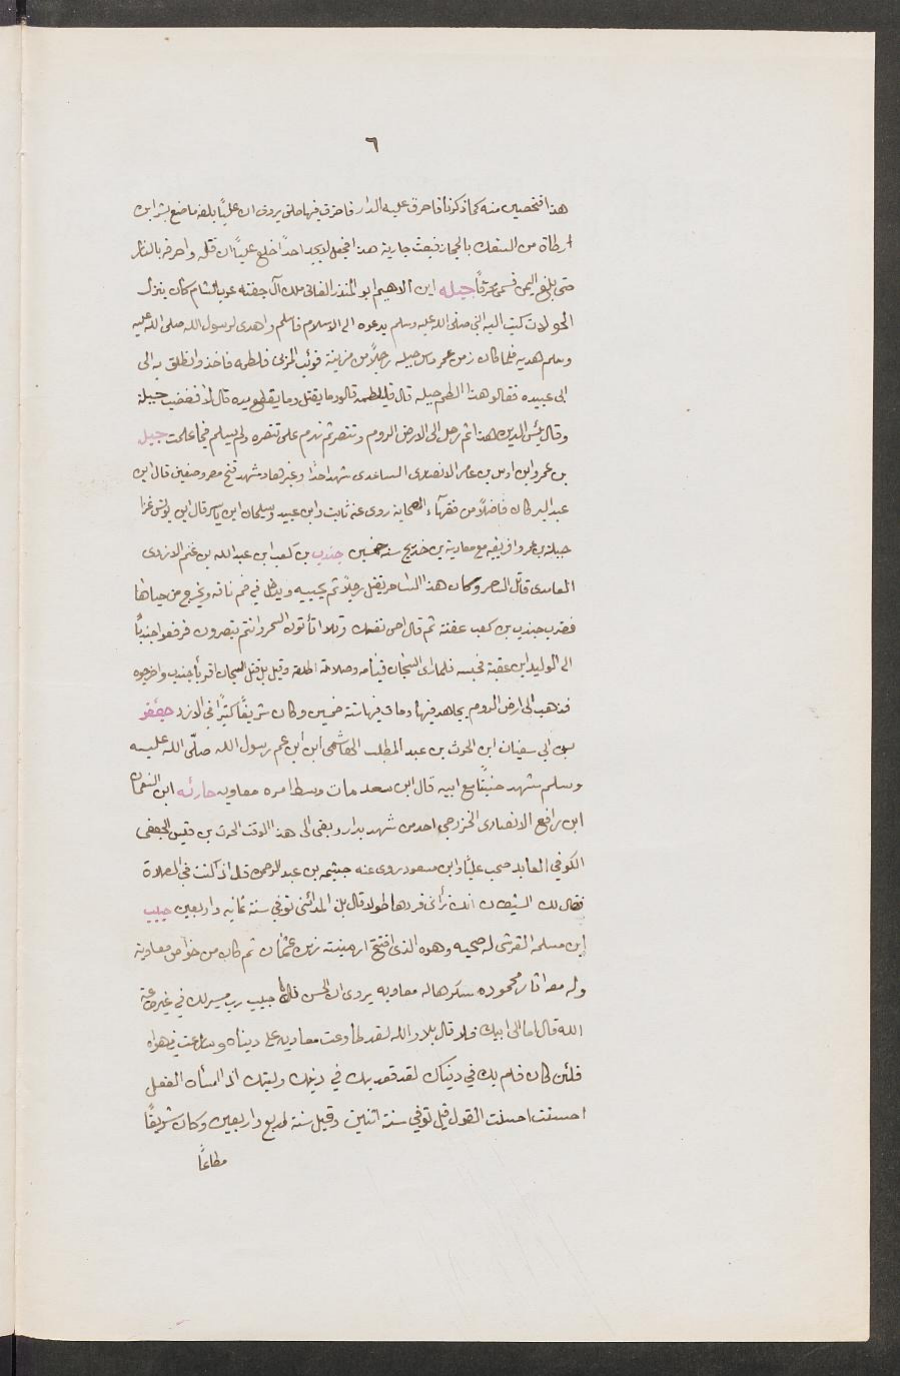 ٦
هذا فتحصين منه كما ذكرنا فاحرق عليه الدار فاحترق فيها خلق يروى ان عليًا بلغه ما صنع بشر ابن
ارطاة من السفك بالحجاز فبعث جارية هذا فجعل لا يجد احدًا خلع عليًا الا قتله واحرقه بالنار
حتى بلغ اليمن فسمى محرقًا جبله ابن الايهم ابو المنذر الغسانى ملك آل جفنه عرب الشام كان ينزل
الجولان كتب اليه النبى صلى الله عليه وسلم يدعوه الى الاسلام فاسلم واهدى لرسول الله صلى الله عليه
وسلم هديه فلما كان زمن عمر داس جبله رجلاً من مزينة فوثب المزنى فلطمه فاخذ وانطلق به الى
ابى عبيده فقالو هذا لطم جبله قال فليلطمه قالو وما يقتل وما يقطع يده قال لا فغضب جبلة
وقال بئس الدين هذا ثم رحل الى الارض الروم وتنصر ثم ندم على تنصره ولم يسلم فيما علمت جبل
بن عمرو ابن اوس بن عامر الانصارى الساعدى شهد احدًا وغيرها وشهد فتح مصر وصفين قال ابن
عبد البر كان فاضلاً من فقهآء الصحابة روى عنه ثابت وابن عبيد وسليمان ابن يسار قال ابن يونس غزا
جبلة بن عمرو افريقيه مع معاوية بن خديج سنة خمسين جندب بن كعب ابن عبد الله بن غنم الازدى
الغامدى قاتل الساحر وكان هذا الساحر يقتل رجلاً ثم يحييه ويدخل في فم ناقه ويخرج من حياها
فضرب جندب بن كعب عنقه ثم قال احى نفسك وتلا اتأتون السحر وانتم تبصرون فرفعو جندبًا
الى الوليد ابن عقبة فحبسه فلما راى السجان قيامه وصلاته اطلقه وقيل بل قتل السجان اقربأ جندب واخرجوه
فذهب الى ارض الروم يجاهد فيها ومات فيها سنة خمسين وكان شريفًا كبيرًا فى الازد جعفر
بن ابى سفيان ابن الحرث بن عبد المطلب الهاشمى ابن ابن عم رسول الله صلّى الله عليه
وسلم شهد حنينًا مع ابيه قال ابن سعد مات وسط امره معاويه حارثه ابن النعمان
ابن رافع الانصارى الخزرجى احد من شهد بدار وبقى الى هذا الوقت الحرث بن قيس الجعفى
الكوفي العابد صحب عليًا وابن مسعود روى عنه خيثمه بن عبد الرحمن قال اذا كنت في الصلاة
فقال لك الشيطان انك ترأى فزدها طولا قال بن المدائنى توفي سنة ثمانيه واربعين حبيب
ابن مسلمه القرشى له صحبه وهوه الذى افتتح ارمينته زمن عثمان ثم كان من خواص معاوية
وله معه اثار محموده شكرها له معاويه يروى ان الحسن قال يا حبيب رب مسير لك في غير طاعة
الله قال اما الى ابيك فلا قال بلا والله لقد طاوعت معاويه على ديناه وسارعت في هواه
فلئن كان قام بك في دنياك لقد قعد بك في دينك وليتك اذ اسأت الفعل
احسنت احسنت القول قيل توفي سنة اثنين وقيل سنة اربع واربعين وكان شريفًا
مطاعًا